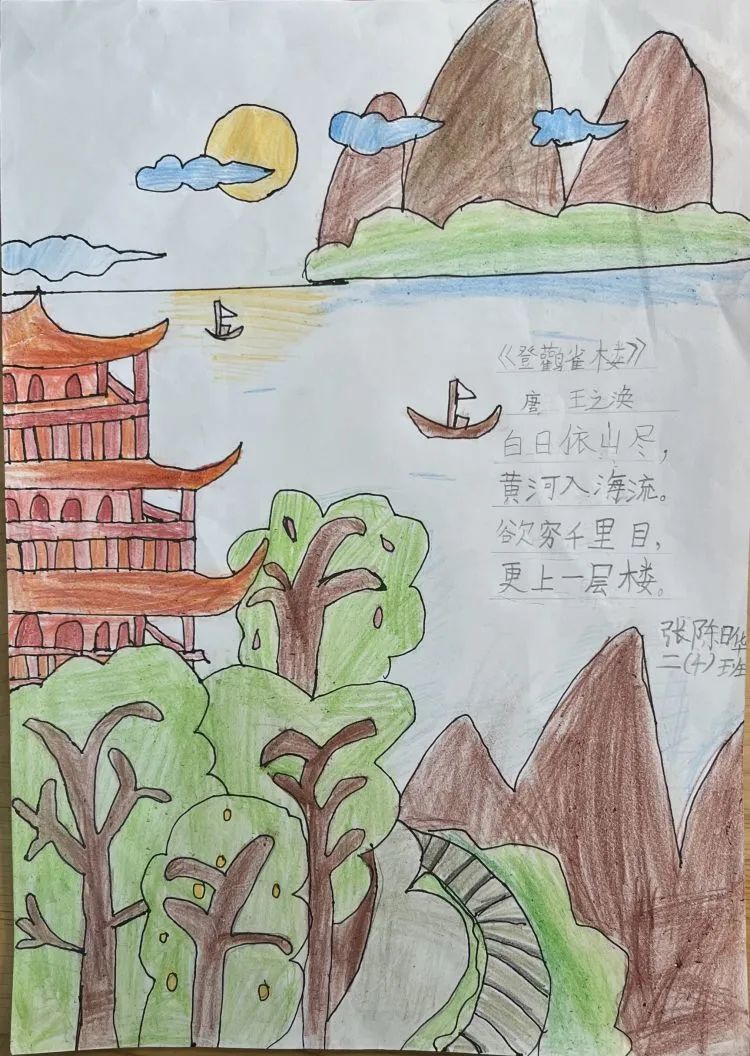 《登觀雀楼》
唐 王之涣
白日依山尽，
黄河入海流。
欲穷千里目，
更上一层楼。
张陈晔
二(十)班